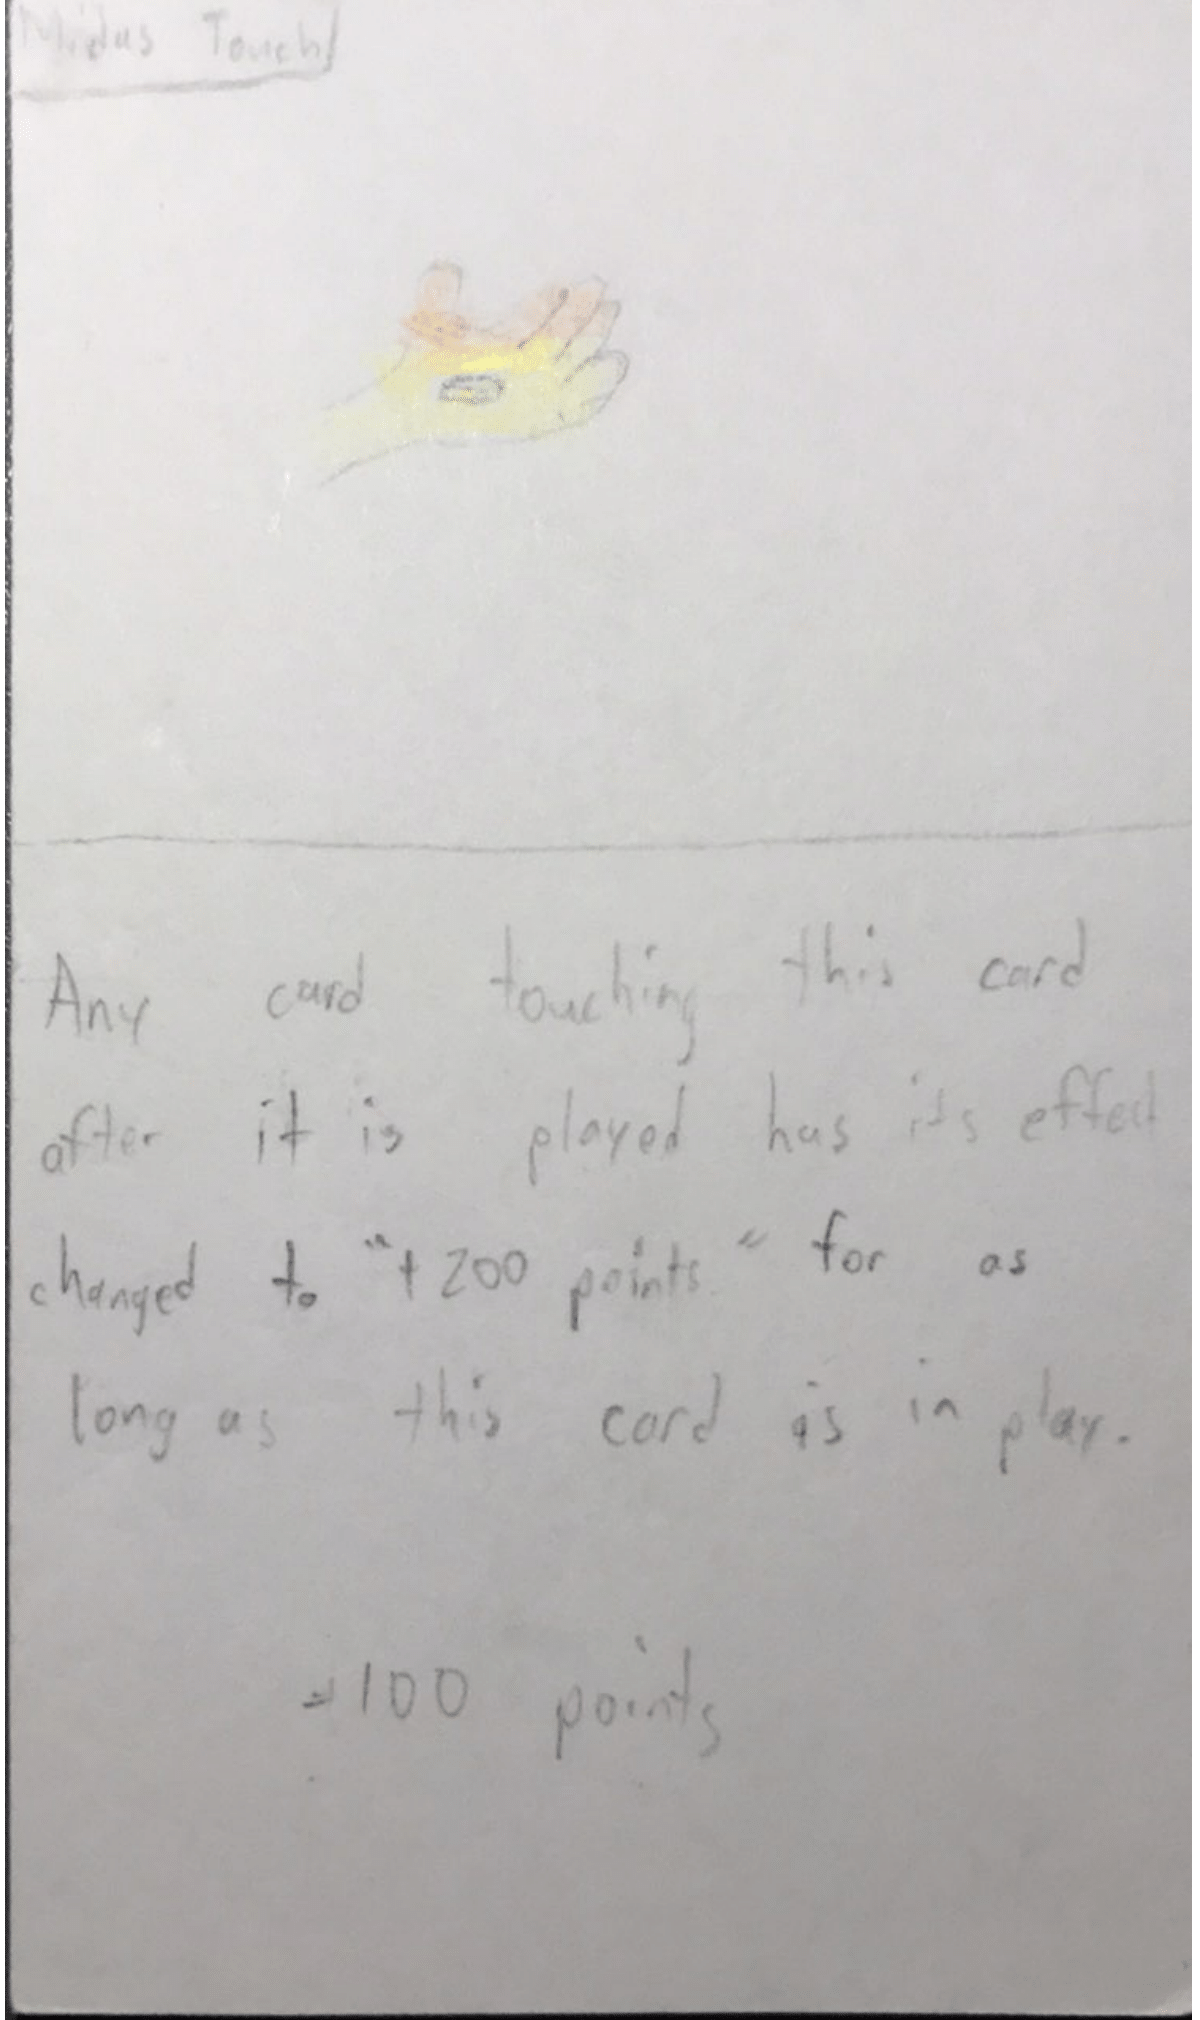 Midas Touch
Any card touching this card
after it is played has its effect
changed to "+200 points" for as
long as this card is in play.
-100 points